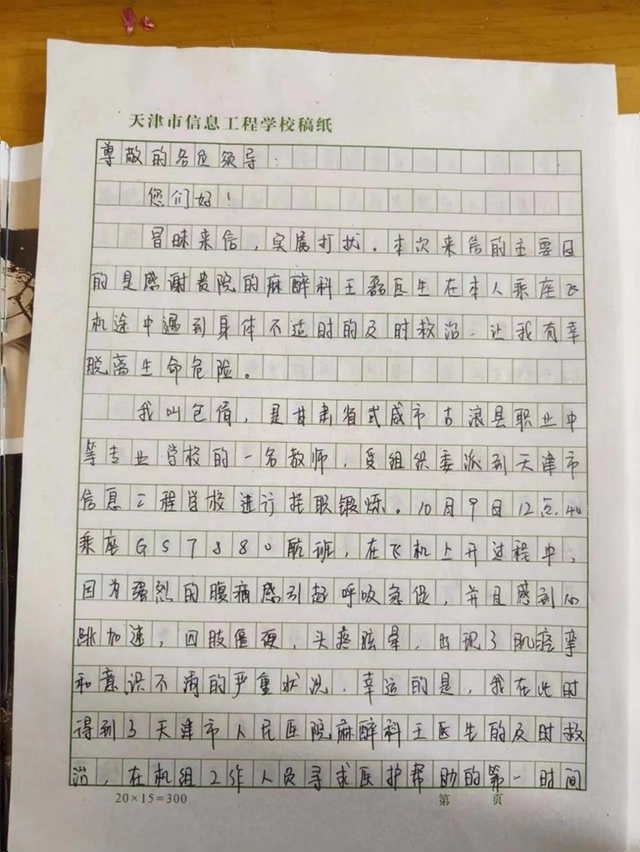 天津市信息工程学校稿纸
尊敬的各位领导：
您们好！
冒昧来信，实属打扰。本次来信的主要目
的是感谢贵院的麻醉科王磊医生在本人乘座飞
机途中遇到身体不适时的及时救治，让我有幸
脱离生命危险。
我叫包倩，是甘肃省武威市古浪县职业中
等专业学校的一名教师，受组织委派到天津市
信息工程学校进行挂职锻炼。10月9日12点40
乘座GS7880航班，在飞机上升过程中，
因为强烈的腹痛感引起呼吸急促，并且感到心
跳加速，四肢僵硬，头疼眩晕，出现了肌痉挛
和意识不清的严重状况，幸运的是，我在此时
得到了天津市人民医院麻醉科王医生的及时救
治，在机组工作人员寻求医护帮助的第一时间
20×15=300
第 页